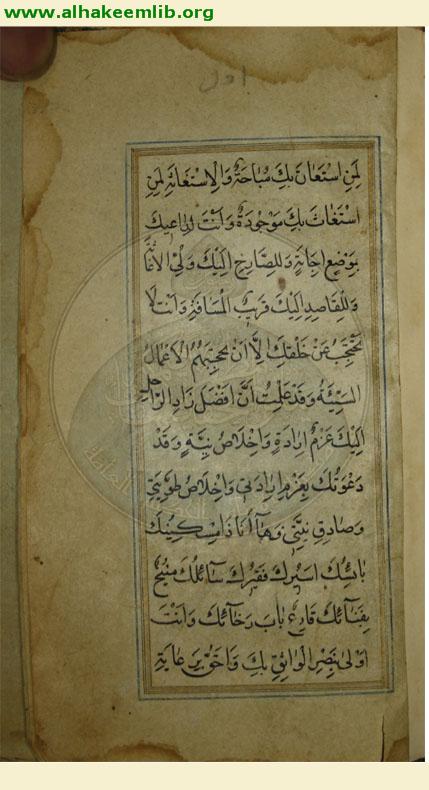 www.alhakeemlib.org
اول
لِمَنِ اسْتَعَانَ بِكَ مُبَاحَةٌ وَالْاِسْتِغَاثَةِ لِمَنِ
اسْتَغَاثَ بِكَ مَوْجُودَةٌ وَاَنْتَ لِدَاعِيكَ
بِمَوْضِعِ اِجَابَةٍ وَلِلصَّارِخِ اِلَيْكَ وَلِيُّ الْاِغَاثَةِ
وَلِلْقَاصِدِ اِلَيْكَ قَرِيبُ الْمَسَافَةِ وَاَنْتَ لَا
تَحْتَجِبُ عَنْ خَلْقِكَ اِلَّا اَنْ تَحْجُبَهُمُ الْاَعْمَالُ
السَّيِّئَةُ وَقَدْ عَلِمْتُ اَنَّ اَفْضَلَ زَادِ الرَّاحِلِ
اِلَيْكَ عَزْمُ اِرَادَةٍ وَاِخْلَاصُ نِيَّةٍ وَقَدْ
دَعَوْتُكَ بِعَزْمِ اِرَادَتِي وَاِخْلَاصِ طَوِيَّتِي
وَصَادِقِ نِيَّتِي وَهَا اَنَا ذَا مِسْكِينُكَ
بَائِسُكَ اَسِيرُكَ فَقِيرُكَ سَائِلُكَ مُنِيخٌ
بِفِنَائِكَ قَارِعٌ بَابَ رَجَائِكَ وَاَنْتَ
اَوْلَى بِنَصْرِ الْوَاثِقِ بِكَ وَاَحَقُّ بِرِعَايَةِ